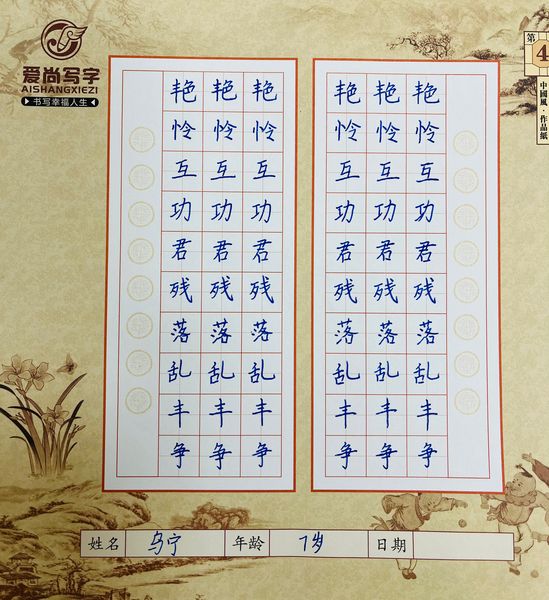 爱尚写字
AISHANGXIEZI
书写幸福人生
第
4
中國風·作品紙
艳 艳 艳 艳 艳 艳
怜 怜 怜 怜 怜 怜
互 互 互 互 互 互
功 功 功 功 功 功
君 君 君 君 君 君
残 残 残 残 残 残
落 落 落 落 落 落
乱 乱 乱 乱 乱 乱
丰 丰 丰 丰 丰 丰
争 争 争 争 争 争
姓名 乌宁 年龄 7岁 日期